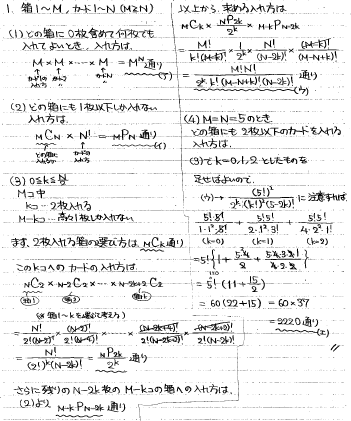 1. 箱1〜M, カード1〜N (M≧N)
(1) どの箱に0枚含めて何枚でも
入れてよいとき、入れ方は、
M × M × ・・・ × M = M^N 通り
(ア)
(2) どの箱にも1枚以下しか入れない
入れ方は、
MCN × N! = MPN 通り
(イ)
(3) 0≦k≦N/2
Mコ中
kコ…2枚入れる
M-kコ…高々1枚しか入れない
まず、2枚入れる箱の選び方は、MCk 通り
このkコへのカードの入れ方は、
NC2 × N-2C2 × ・・・ × N-2k+2C2
(箱1) (箱2) (箱k)
(※ 箱1〜kを選ぶと考える)
= N!/2!(N-2)! × (N-2)!/2!(N-4)! × ・・・ × (N-2k+2)!/2!(N-2k)!
= N!/(2!)^k(N-2k)! = NP2k/2^k 通り
さらに残りのN-2k枚のM-kコの箱への入れ方は、
(2)より M-kPN-2k 通り
以上から、求める入れ方は
MCk × NP2k/2^k × M-kPN-2k
= M!/k!(M-k)! × 1/2^k × N!/(N-2k)! × (M-k)!/(M-N+k)!
= M!N!/2^k・k!(M-N+k)!(N-2k)! 通り
(ウ)
(4) M=N=5のとき、
どの箱にも2枚以下のカードを入れる
入れ方は、
(3)でk=0,1,2としたものを
足せばよいので、
(ウ)→ (5!)^2/2^k・(k!)^2(5-2k)! に注意すれば、
5!5!/1・1^2・5! + 5!5!/2・1^2・3! + 5!5!/4・2^2・1!
(k=0) (k=1) (k=2)
= 5!{1 + 5・4/2 + 5・4・3・2・1/4・2・2}
= 5!(11 + 15/2)
= 60(22+15) = 60×37
= 2220通り
(エ)